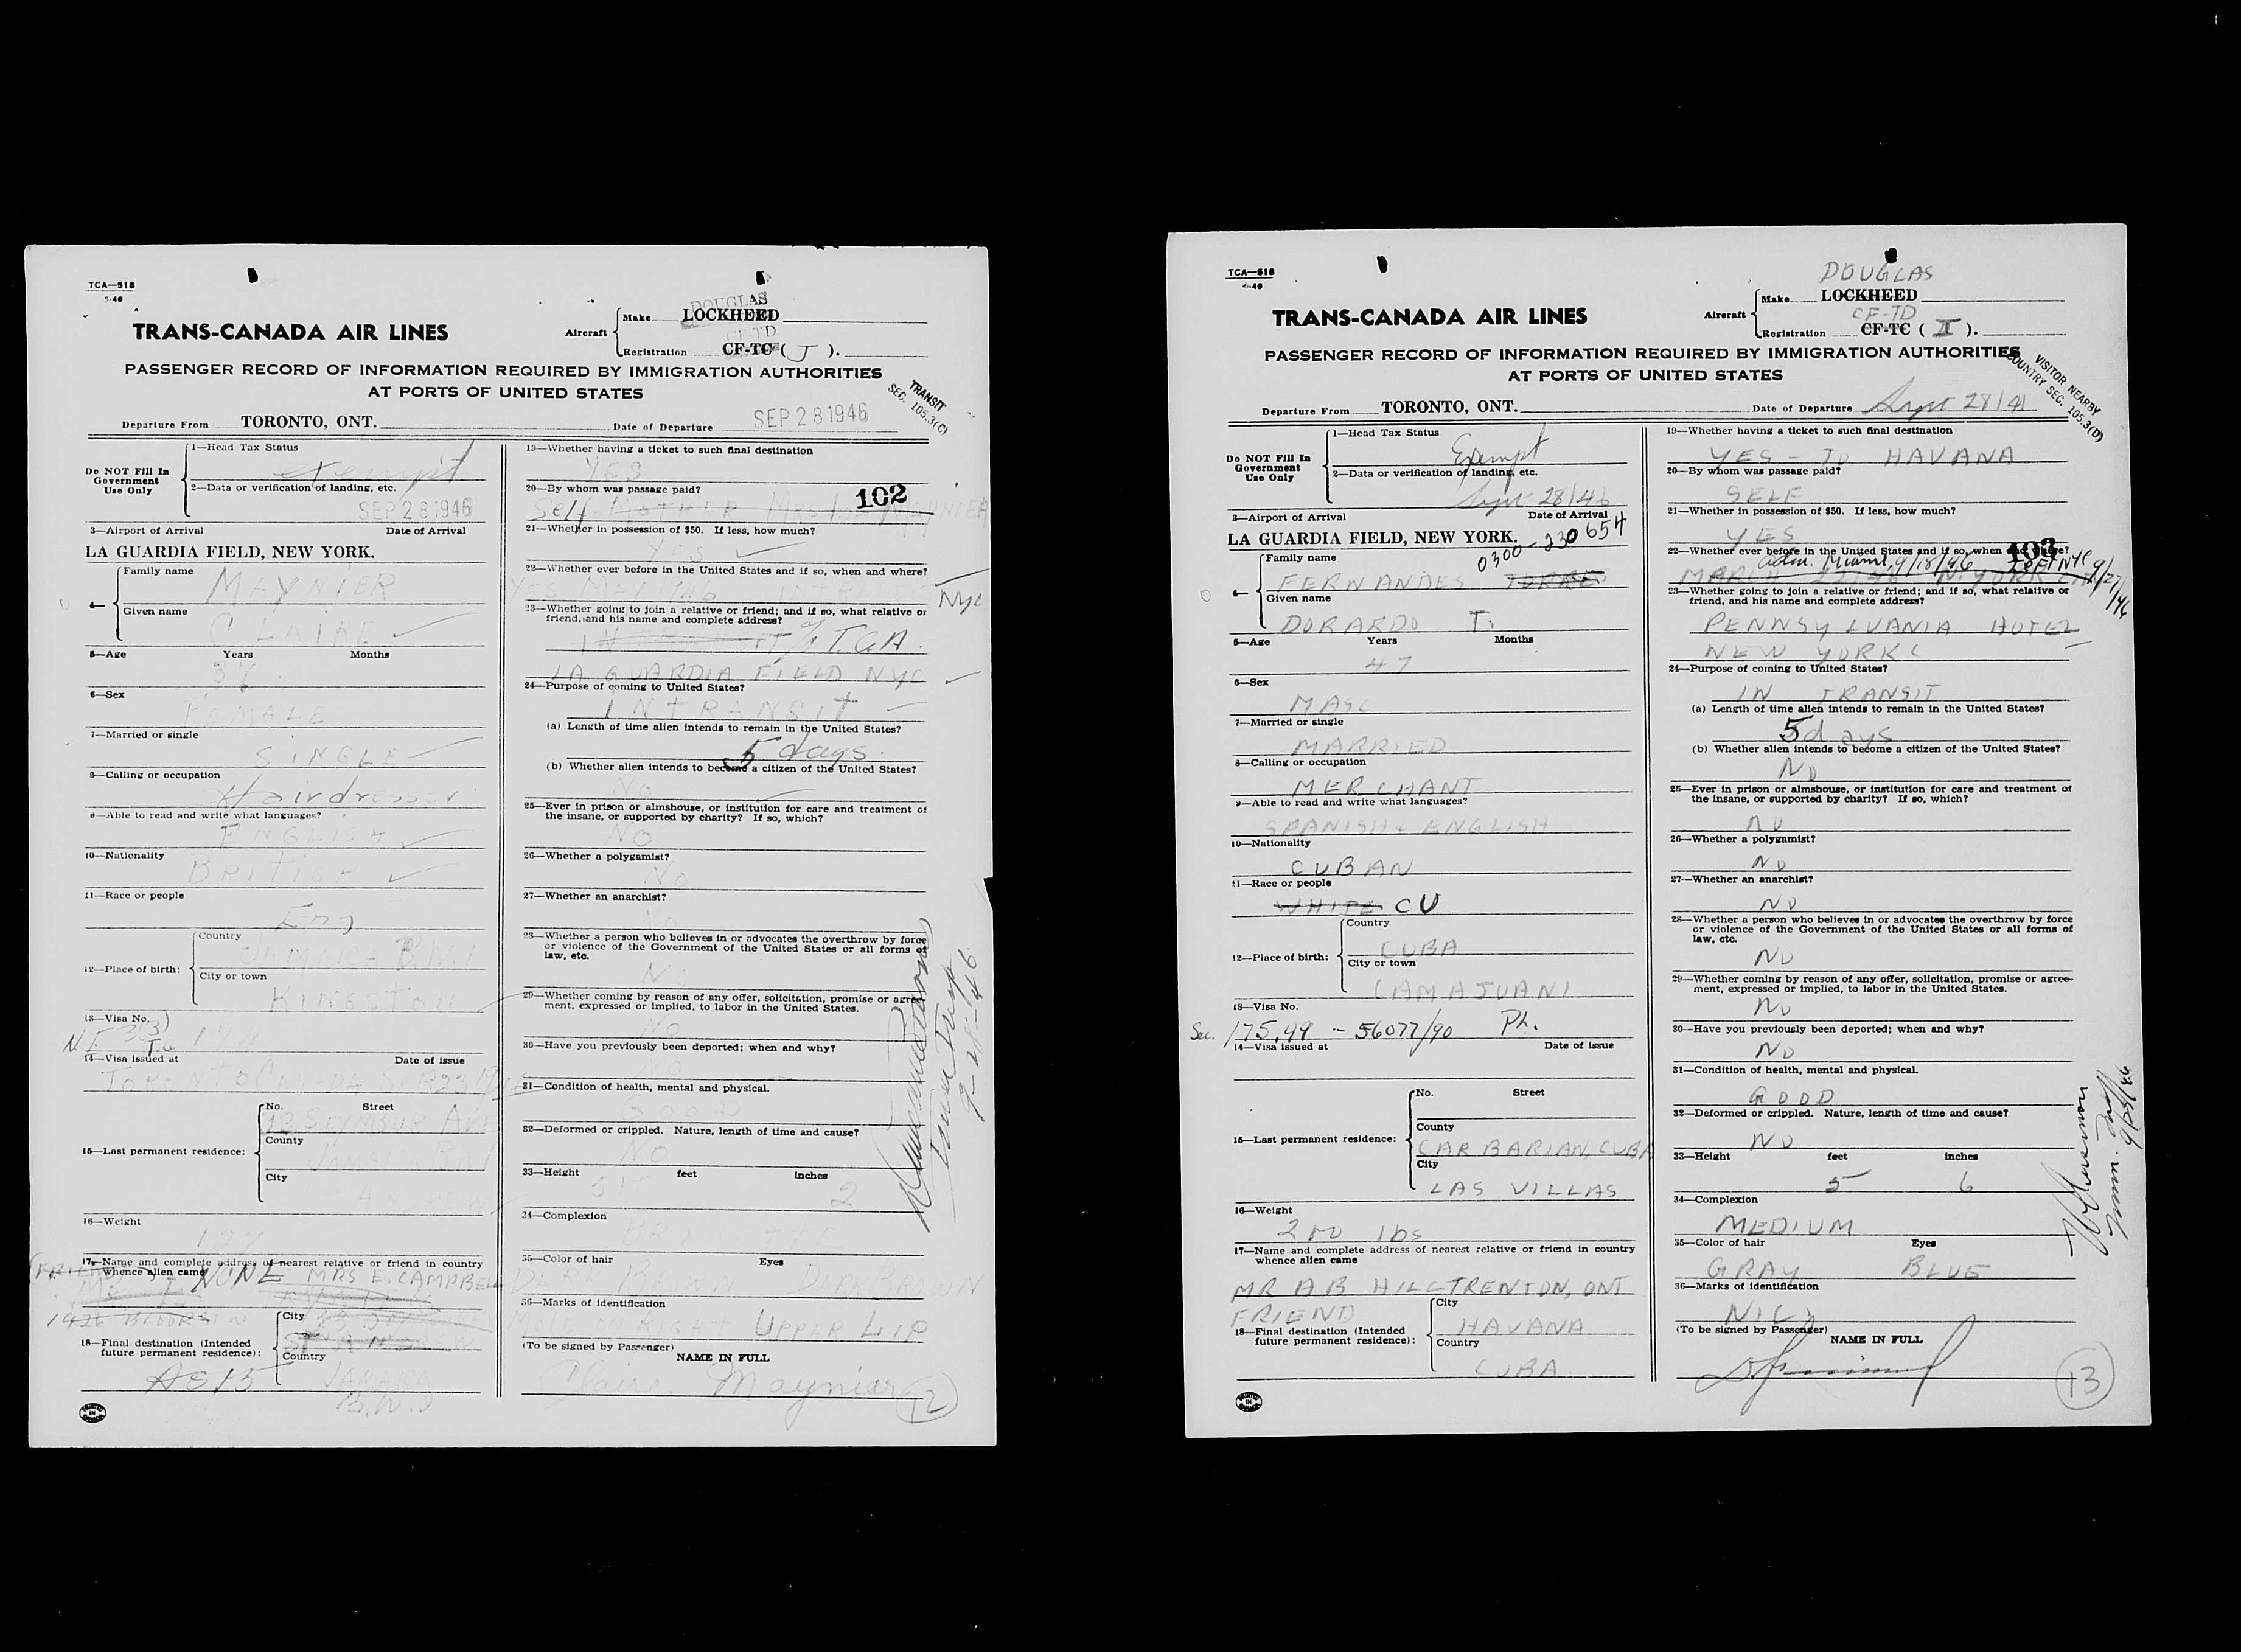 TCA—518
5-46
TRANS-CANADA AIR LINES
Aircraft
Make LOCKHEED
DOUGLAS
Registration CF-TC ( J ).
CF-TD
PASSENGER RECORD OF INFORMATION REQUIRED BY IMMIGRATION AUTHORITIES
AT PORTS OF UNITED STATES
TRANSIT
SEC. 105.3(C)
Departure From TORONTO, ONT. Date of Departure SEP 28 1946
Do NOT Fill In
Government
Use Only
1—Head Tax Status
exempt
2—Data or verification of landing, etc.
SEP 28 1946
3—Airport of Arrival Date of Arrival
LA GUARDIA FIELD, NEW YORK.
4—
Family name
MAYNIER
Given name
CLAIRE
5—Age Years Months
37
6—Sex
FEMALE
7—Married or single
SINGLE
8—Calling or occupation
Hairdresser
9—Able to read and write what languages?
ENGLISH
10—Nationality
BRITISH
11—Race or people
Eng
12—Place of birth:
Country
B.W.I
City or town
KINGSTON
13—Visa No.
14—Visa issued at Date of issue
TORONTO
15—Last permanent residence:
No. Street
SEYMOUR AVE
County
City
16—Weight
17—Name and complete address of nearest relative or friend in country
whence alien came
NONE MRS E. CAMPBELL
18—Final destination (Intended
future permanent residence):
City
Country
JAMAICA
B.W.I
19—Whether having a ticket to such final destination
YES
20—By whom was passage paid?
Self MOTHER
102
21—Whether in possession of $50. If less, how much?
YES
22—Whether ever before in the United States and if so, when and where?
NYC
23—Whether going to join a relative or friend; and if so, what relative or
friend, and his name and complete address?
T.C.A.
LA GUARDIA FIELD NYC
24—Purpose of coming to United States?
INTRANSIT
(a) Length of time alien intends to remain in the United States?
5 days
(b) Whether alien intends to become a citizen of the United States?
NO
25—Ever in prison or almshouse, or institution for care and treatment of
the insane, or supported by charity? If so, which?
NO
26—Whether a polygamist?
NO
27—Whether an anarchist?
No
28—Whether a person who believes in or advocates the overthrow by force
or violence of the Government of the United States or all forms of
law, etc.
NO
29—Whether coming by reason of any offer, solicitation, promise or agree-
ment, expressed or implied, to labor in the United States.
NO
30—Have you previously been deported; when and why?
NO
31—Condition of health, mental and physical.
GOOD
32—Deformed or crippled. Nature, length of time and cause?
NO
33—Height feet inches
5 2
34—Complexion
35—Color of hair Eyes
DARK BROWN DARK BROWN
36—Marks of identification
RIGHT UPPER LIP
(To be signed by Passenger)
NAME IN FULL
Claire Maynier
12
PRINTED IN CANADA
TCA—518
TRANS-CANADA AIR LINES
Aircraft
DOUGLAS
Make LOCKHEED
CF-TD
Registration CF-TC ( II ).
PASSENGER RECORD OF INFORMATION REQUIRED BY IMMIGRATION AUTHORITIES
AT PORTS OF UNITED STATES
VISITOR NEARBY
COUNTRY SEC. 105.3(D)
Departure From TORONTO, ONT. Date of Departure Sept 28/46
Do NOT Fill In
Government
Use Only
1—Head Tax Status
Exempt
2—Data or verification of landing, etc.
Sept 28/46
3—Airport of Arrival Date of Arrival
LA GUARDIA FIELD, NEW YORK.
0300-230654
4—
Family name
FERNANDES TORRE
Given name
DORARDO T.
5—Age Years Months
47
6—Sex
MASC
7—Married or single
MARRIED
8—Calling or occupation
MERCHANT
9—Able to read and write what languages?
SPANISH & ENGLISH
10—Nationality
CUBAN
11—Race or people
WHITE CU
12—Place of birth:
Country
CUBA
City or town
CAMAJUANI
13—Visa No.
Sec. 175.49 - 56077/90 Ph.
14—Visa issued at Date of issue
15—Last permanent residence:
No. Street
County
CARBARIAN, CUBA
City
LAS VILLAS
16—Weight
200 lbs
17—Name and complete address of nearest relative or friend in country
whence alien came
MR A B HILL TRENTON, ONT
FRIEND
18—Final destination (Intended
future permanent residence):
City
HAVANA
Country
CUBA
19—Whether having a ticket to such final destination
YES - TO HAVANA
20—By whom was passage paid?
SELF
21—Whether in possession of $50. If less, how much?
YES
22—Whether ever before in the United States and if so, when and where?
103
adm. Miami, 9/18/46
MARCH N. YORK
23—Whether going to join a relative or friend; and if so, what relative or
friend, and his name and complete address?
PENNSYLVANIA HOTEL
NEW YORK C
24—Purpose of coming to United States?
IN TRANSIT
(a) Length of time alien intends to remain in the United States?
5 days
(b) Whether alien intends to become a citizen of the United States?
NO
25—Ever in prison or almshouse, or institution for care and treatment of
the insane, or supported by charity? If so, which?
NO
26—Whether a polygamist?
NO
27—Whether an anarchist?
NO
28—Whether a person who believes in or advocates the overthrow by force
or violence of the Government of the United States or all forms of
law, etc.
NO
29—Whether coming by reason of any offer, solicitation, promise or agree-
ment, expressed or implied, to labor in the United States.
NO
30—Have you previously been deported; when and why?
NO
31—Condition of health, mental and physical.
GOOD
32—Deformed or crippled. Nature, length of time and cause?
NO
33—Height feet inches
5 6
34—Complexion
MEDIUM
35—Color of hair Eyes
GRAY BLUE
36—Marks of identification
NIL
(To be signed by Passenger)
NAME IN FULL
13
PRINTED IN CANADA